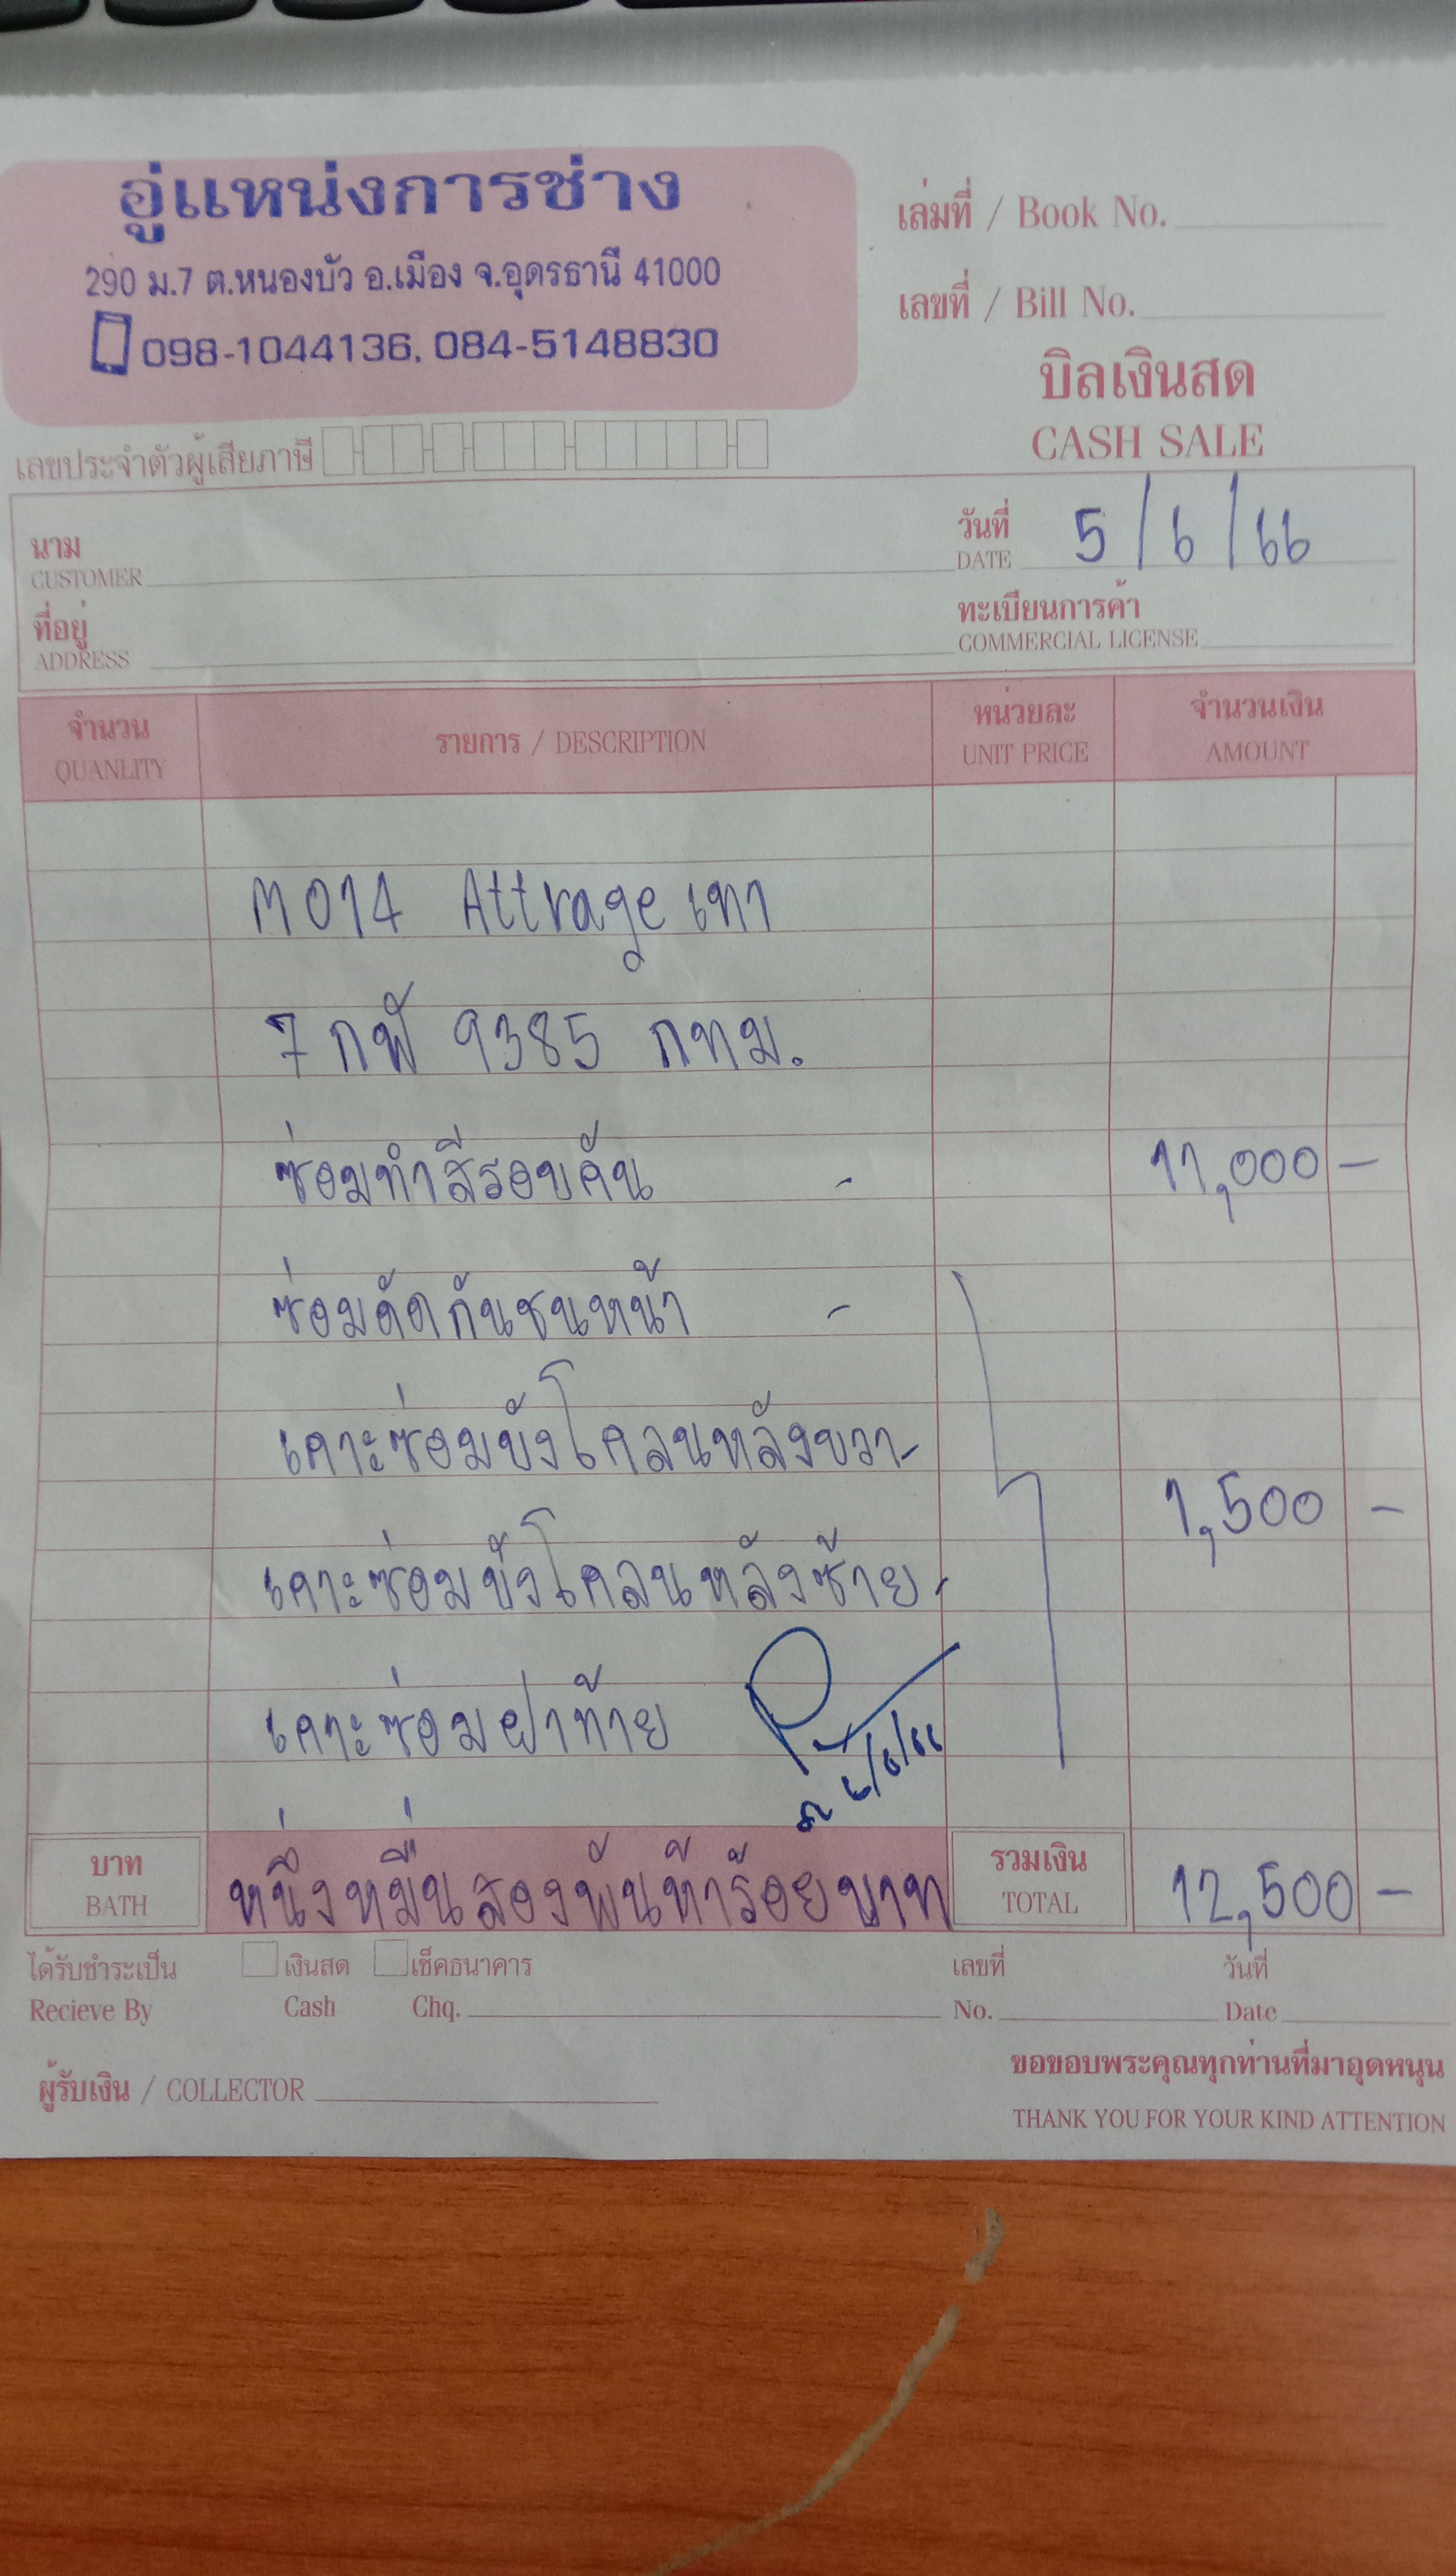 อู่แหน่งการช่าง
290 ม.7 ต.หนองบัว อ.เมือง จ.อุดรธานี 41000
098-1044136, 084-5148830
เล่มที่ / Book No.
เลขที่ / Bill No.
บิลเงินสด
CASH SALE
เลขประจำตัวผู้เสียภาษี
นาม
CUSTOMER
วันที่ 5/6/66
DATE
ที่อยู่
ADDRESS
ทะเบียนการค้า
COMMERCIAL LICENSE
จำนวน รายการ / DESCRIPTION หน่วยละ จำนวนเงิน
QUANLITY UNIT PRICE AMOUNT
M014 Attrage เทา
7 กฬ 9385 กทม.
ซ่อมทำสีรอบคัน - 11,000 -
ซ่อมดัดกันชนหน้า -
เคาะซ่อมบังโคลนหลังขวา -
1,500 -
เคาะซ่อมบังโคลนหลังซ้าย -
เคาะซ่อมฝาท้าย
บาท หนึ่งหมื่นสองพันห้าร้อยบาท รวมเงิน 12,500 -
BATH TOTAL
ได้รับชำระเป็น เงินสด เช็คธนาคาร เลขที่ วันที่
Recieve By Cash Chq. No. Date
ผู้รับเงิน / COLLECTOR
ขอขอบพระคุณทุกท่านที่มาอุดหนุน
THANK YOU FOR YOUR KIND ATTENTION